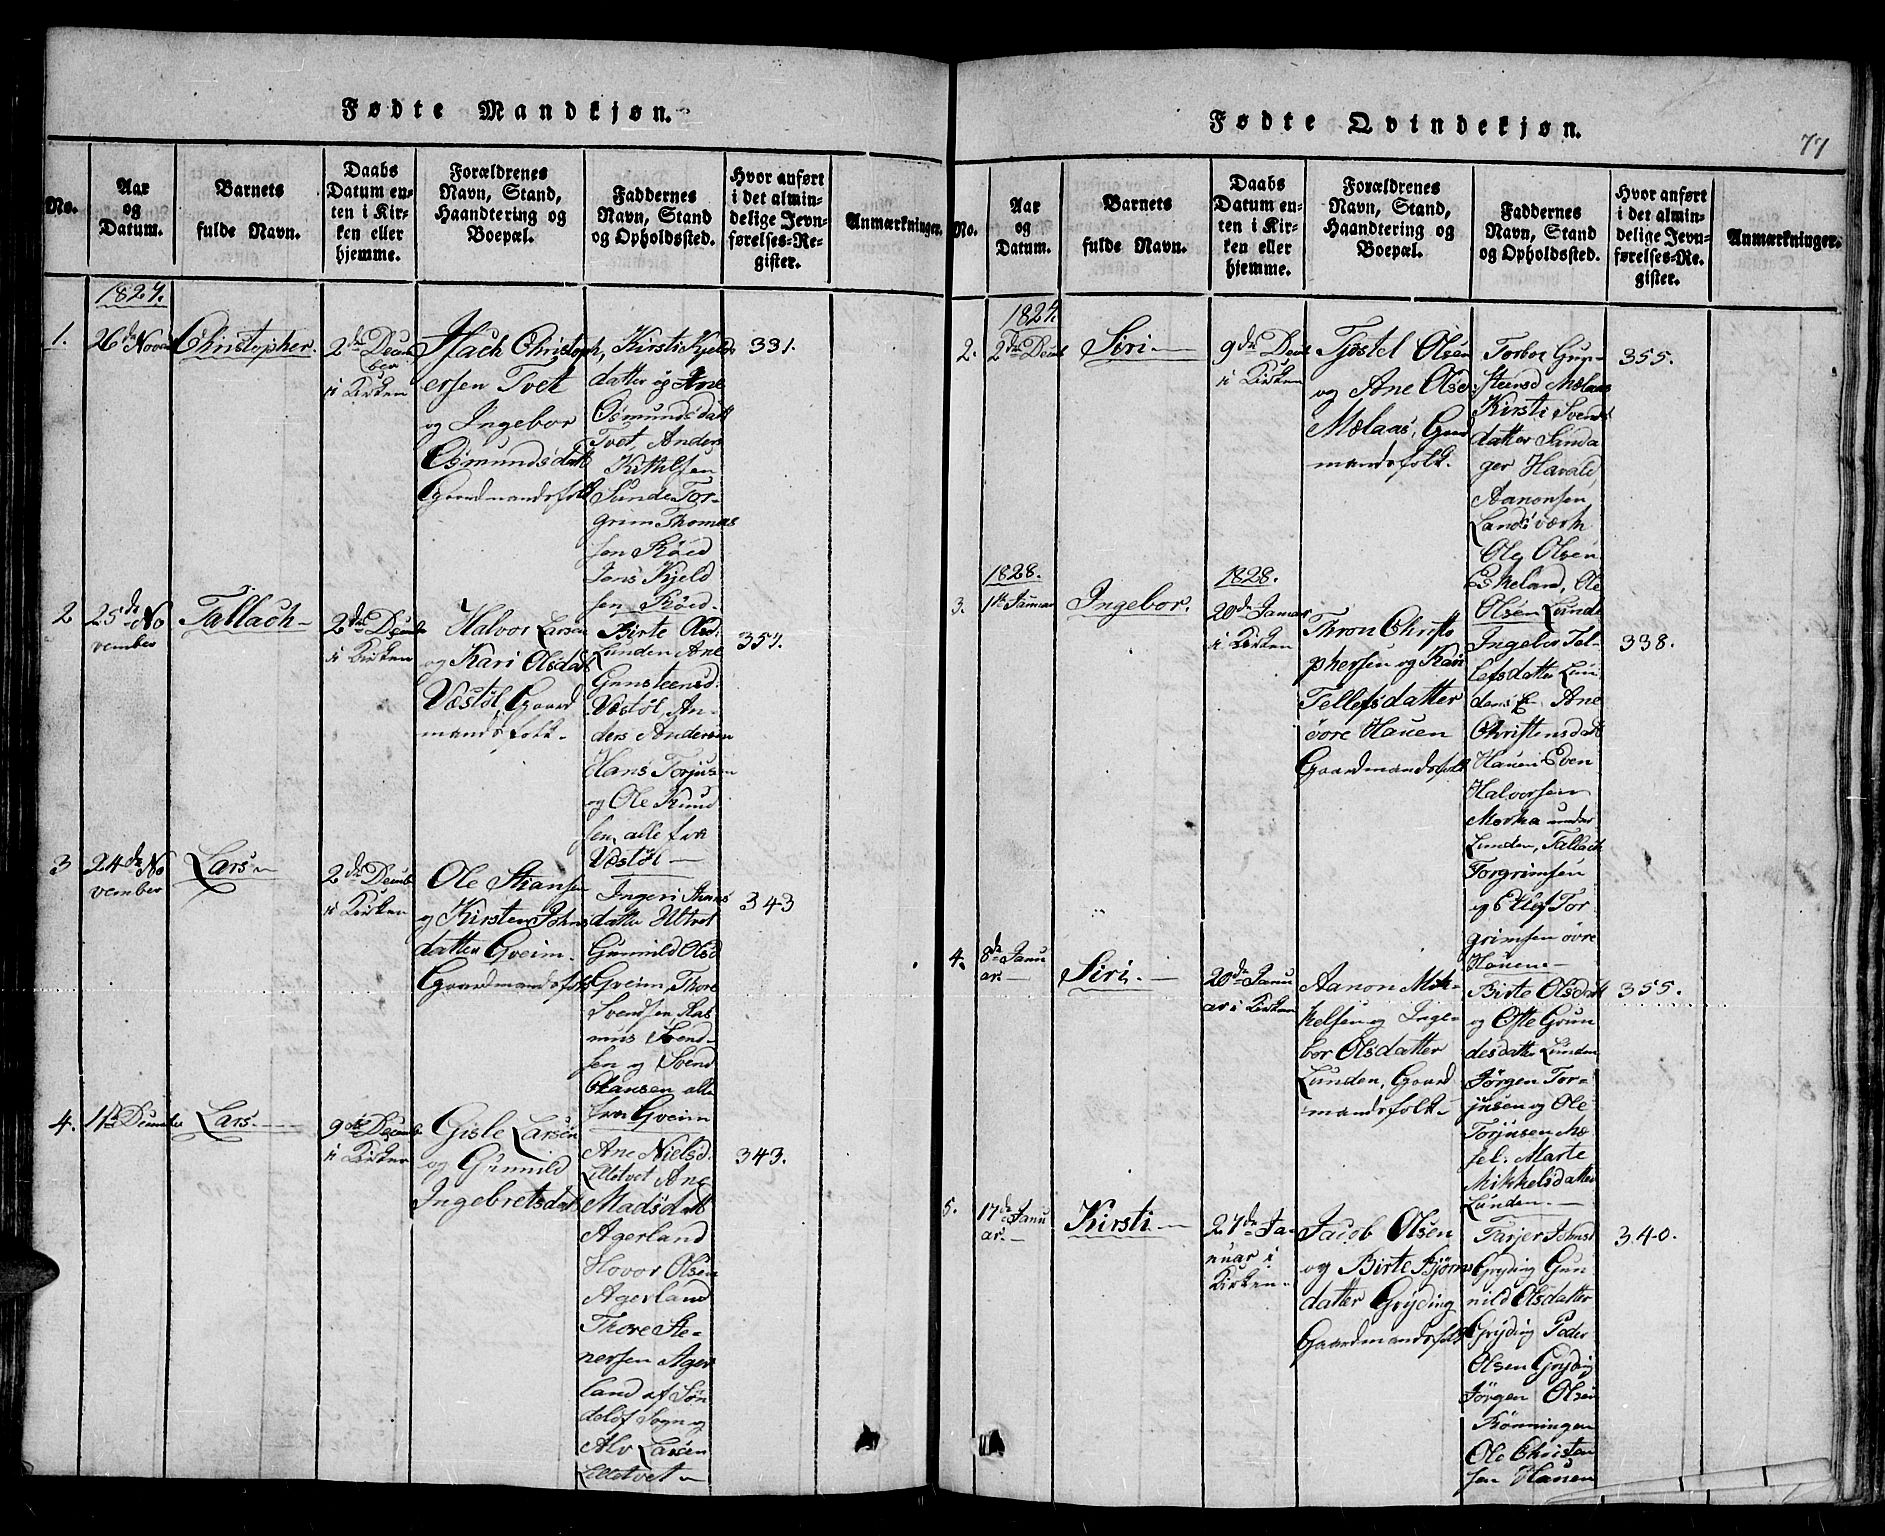 Fødte Mandkjøn.
No.
Aar
og
Datum.
Barnets
fulde Navn.
Daabs
Datum en-
ten i Kir-
ken eller
hjemme.
Forældrenes
Navn, Stand,
Haandtering og
Boepæl.
Faddernes
Navn, Stand
og Opholdssted.
Hvor anført
i det almin-
delige Jevn-
førelses-Re-
gister.
Anmærkninger.
1827.
1.
26de Novem
Christopher.
2den Decem
ber
i Kirken
Isach Christoph
ersen Tvet
og Ingebor
Osmundsdatt
Gaardmandsfolk
Kirsti Kjelds
datter og Ane
Osmundsdatt
Tvet, Anders
Kithilsen
Sunde Tor-
grim Thomas
sen Röed
Jens Kjeld
sen Röed
331.
2
25de No
vember
Tallach
2den Decemb
i Kirken
Halvor Larsen
og Kari Olsdatt
Væstöl, Gaard
mandsfolk.
Birte Olsd:
Lunden, Ane
Gunsteensd:
Væstöl, An-
ders Andersen
Hans Torjusen
og Ole Knud
sen, alle fra
Væstöl
357.
3
24de No
vember
Lars
2den Decemb
i Kirken
Ole Stiansen
og Kirsten Johns
datter Gveim
Gaardmandsfolk
Ingeri Stians
datter Ultvet
Gunnild Olsd
Gveim, Thore
Svendsen, Ras
mus Svend-
sen og Svend
Hansen alle
fra Gveim
343
4.
1ste December
Lars
9de Decemb
i Kirken
Gisle Larsen
og Gunnild
Ingebretsdatt
Ane Nielsd.
Lilletvet Ane
Madsdatt
Agerland
Hovor Olsen
Agerland
Thore Ste-
nersen Ager
land af Sön
delöf Sogn og
Alv Larsen
Lilletvet
343.
Fødte Qvindekjøn.
77
No.
Aar
og
Datum.
Barnets
fulde Navn.
Daabs
Datum en-
ten i Kir-
ken eller
hjemme.
Forældrenes
Navn, Stand,
Haandtering og
Boepæl.
Faddernes
Navn, Stand
og Opholdssted.
Hvor anført
i det almin-
delige Jevn-
førelses-Re-
gister.
Anmærkninger.
1827.
2.
2den Decemb
Siri
9de Decemb
i Kirken
Tjöstel Olsen
og Ane Olsd.
Mælaas, Gaard
mandsfolk.
Torbor Gun-
steensd Mælaas
Kirsti Svends
datter Sanda
ger Havald
Aanonsen
Landsværk
Ole Olsen
Eskeland, Ole
Olsen Lunde
355.
1828.
1828.
3.
1ste Januar
Ingebor.
20de Januar
i Kirken
Thron Christo
phersen og Kari
Tellefsdatter
övre Hauen
Gaardmandsfolk
Ingebor Tel-
lefsdatter Lun
dens E Ane
Christensdatt
Hauen Even
Halvorsen
Morka under
Lunden, Tallach
Torgrimsen
og Ellef Tor
grimsen övre
Hauen
338.
4.
8de Janu
ar.
Siri.
20de Janu
ar i Kirken
Aanon Mik-
kelsen og Inge-
bor Olsdatter
Lunden, Gaard
mandsfolk
Birte Olsdatt
og Gunn
desdatter Lunden
Jörgen Tor-
jusen og Ole
Torjusen Mæ
fel. Marte
Mikkelsdatter
Lunden
355.
5.
17de Janu
ar.
Kirsti
27de Ja-
nuar i
Kirken
Jacob Olsen
og Birte Björns
datter Gryding
Gaardmandsfolk
Tarjer Johnsd
Gryding Gun
nild Olsdatter
Gryding Peder
Olsen Gryding
Jörgen Olsen
Rönningen
Ole Christen
sen Hauen
340.